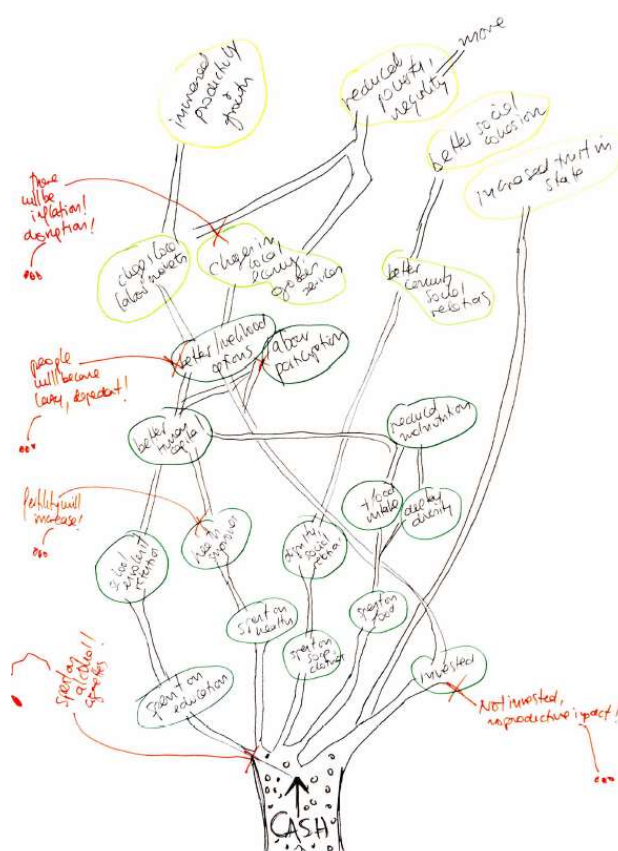 more
increased
productivity
growth
reduced
poverty,
inequality
better social
cohesion
increased trust in
state
there
will be
inflation!
disruption!
local
labor markets
local
better
community
social
relations
people
will become
lazy, dependent!
better livelihood
options
labour
participation
better
human
capital
reduced
malnutrition
fertility will
increase!
school
enrolment/
retention
health
improved
dignity,
social
+ food
intake
dietary
diversity
spent on
health
spent on
food
spent on
soap,
clothes
invested
spent on
alcohol!!
cigarettes
spent on
education
Not invested,
no productive impact!
CASH